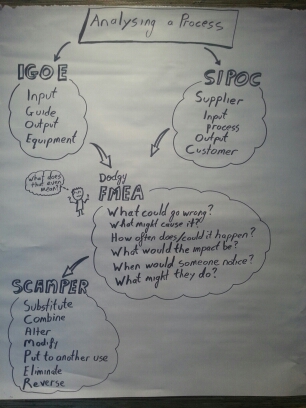 Analysing a Process
IGOE
Input
Guide
Output
Equipment
SIPOC
Supplier
Input
process
Output
Customer
what does
that even
mean?
Dodgy
FMEA
What could go wrong?
What might cause it?
How often does/could it happen?
What would the impact be?
When would someone notice?
What might they do?
SCAMPER
Substitute
Combine
Alter
Modify
Put to another use
Eliminate
Reverse